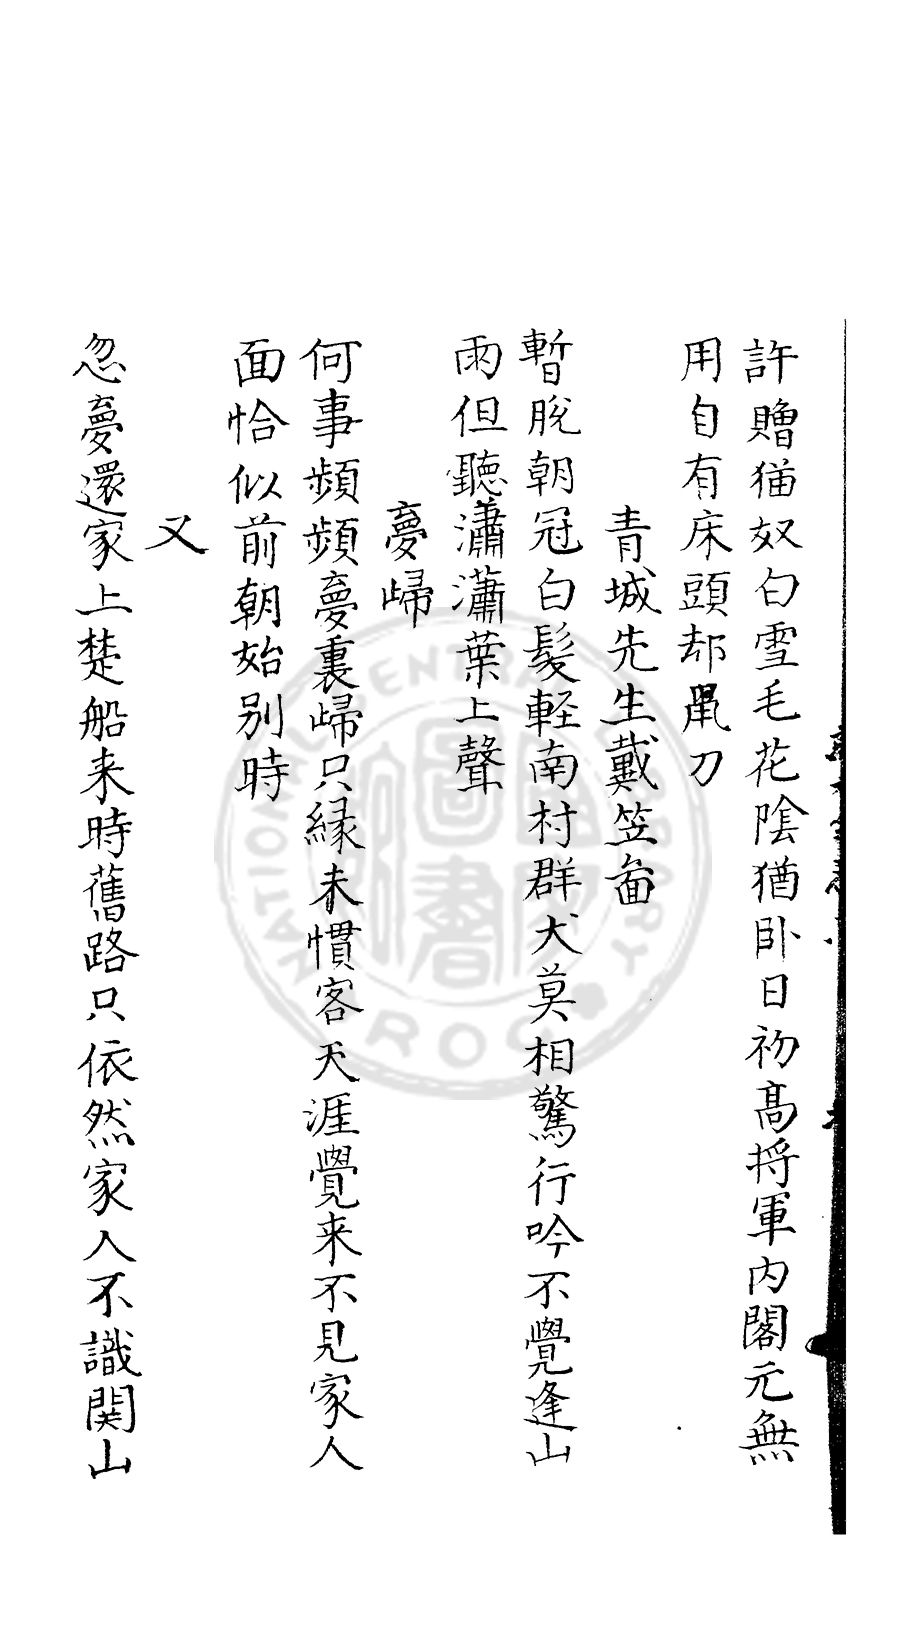 許贈猫奴白雪毛花陰猶卧日初高將軍内閣元無
用自有床頭却鼠刀
青城先生戴笠畵
暫脫朝冠白髮輕南村群犬莫相驚行吟不覺逢山
雨但聽瀟瀟葉上聲
夢歸
何事頻頻夢裏歸只緣未慣客天涯覺来不見家人
面恰似前朝始别時
又
忽夢還家上楚船来時舊路只依然家人不識関山
NATIONAL CENTRAL LIBRARY
ROC